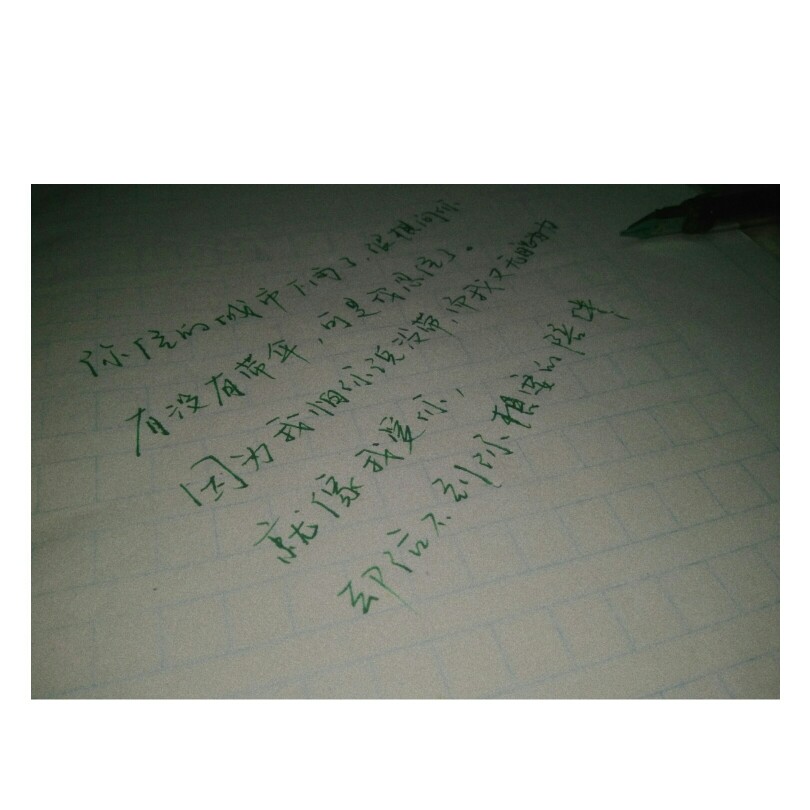 你住的城市下雨了，很想问你
有没有带伞，可是我忍住了。
因为我怕你说没带，而我又无能为力
就像我爱你，
却给不到你想要的陪伴